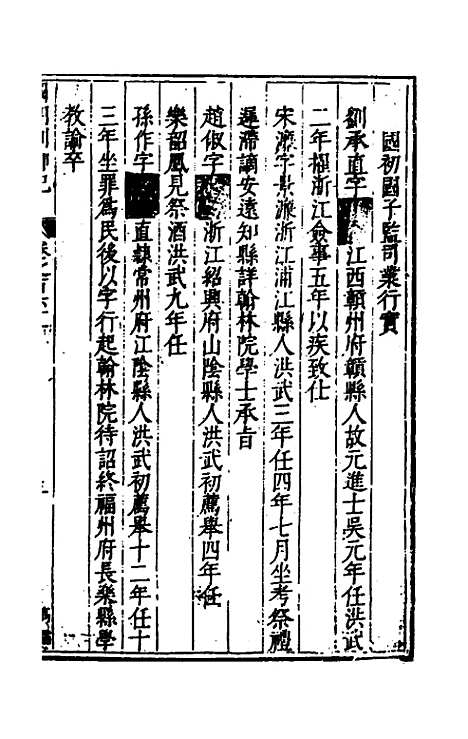 國初國子監司業行實
劉承直字 江西贛州府贛縣人故元進士吳元年任洪武
二年擢浙江僉事五年以疾致仕
宋濂字景濂浙江浦江縣人洪武三年任四年七月坐考祭禮
遲滯謫安遠知縣詳翰林院學士承旨
趙俶字 浙江紹興府山陰縣人洪武初薦舉四年任
樂韶鳳見祭酒洪武九年任
孫作字 直隸常州府江陰縣人洪武初薦舉十二年任十
三年坐罪爲民後以字行起翰林院待詔終福州府長樂縣學
教諭卒